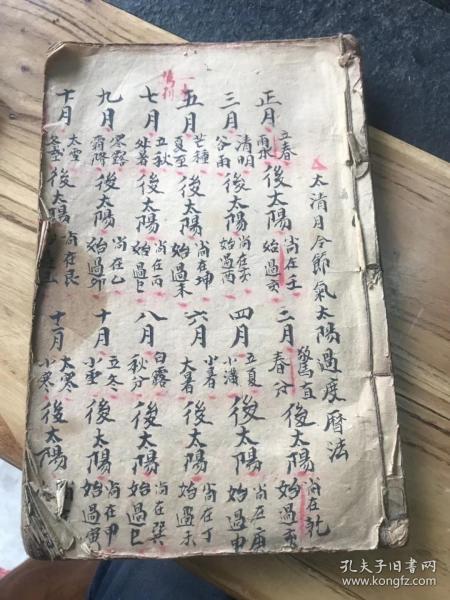 太清月令節氣太陽過度曆法
正月 立春 雨水 後太陽 尚在壬 始過亥
二月 驚直 春分 後太陽 尚在乾 始過
三月 清明 谷雨 後太陽 尚在亥 始過酉
四月 立夏 小滿 後太陽 尚在庚 始過申
五月 芒種 夏至 後太陽 尚在坤 始過未
六月 小暑 大暑 後太陽 尚在丁 始過未
七月 立秋 处暑 後太陽 尚在丙 始過巳
八月 白露 秋分 後太陽 尚在巽 始過巳
九月 寒露 霜降 後太陽 尚在乙 始過卯
十月 立冬 小雪 後太陽 尚在甲 始過
十月 太雪 冬至 後太陽 尚在艮
十二月 太寒 小寒 後太陽
孔夫子旧书网
www.kongfz.com